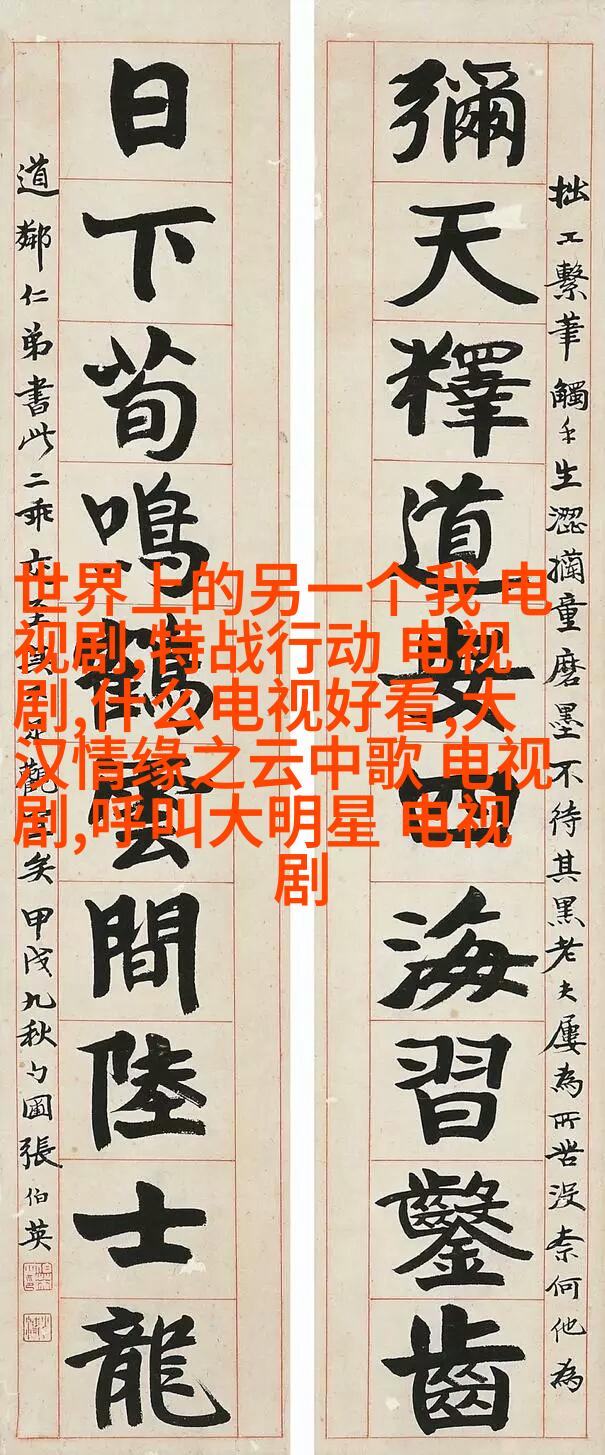 世界上的另一个我 电
视剧,特战行动 电视
剧,什么电视好看,大
汉情缘之云中歌 电视
剧,呼叫大明星 电视
剧
拙工繫筆觸手生澀童磨墨不待其黑老夫屢為所苦沒柰何他為
彌天釋道安四海習鑿齒
日下荀鳴鶴雲間陸士龍
道鄰仁弟書此二乖亦至觀矣甲戌九秋勺圃張伯英